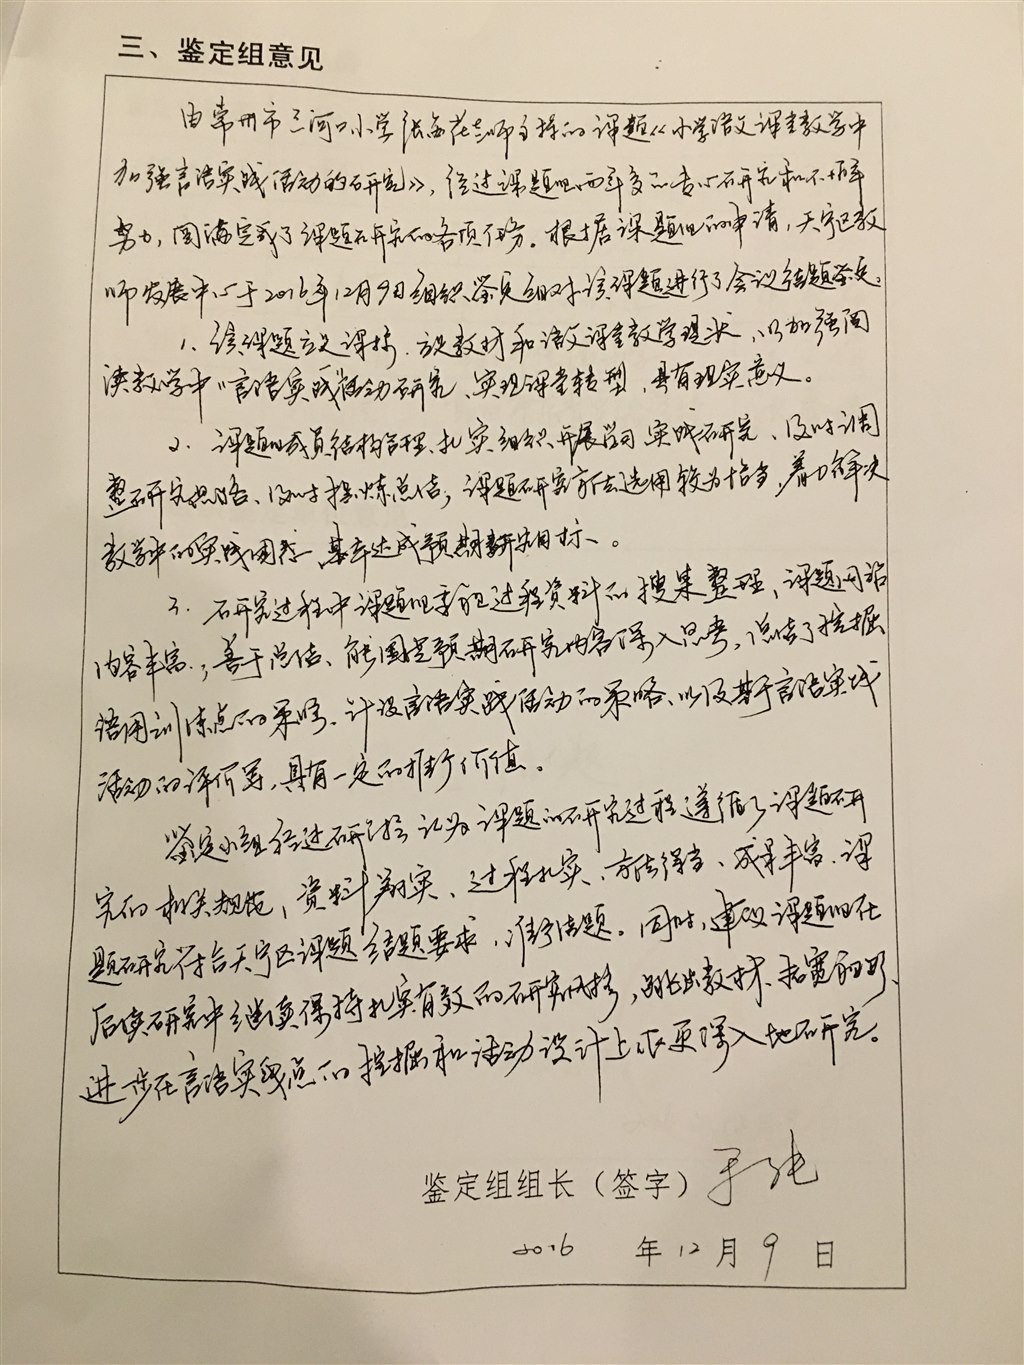 三、鉴定组意见
由常州市三河口小学张老师主持的课题《小学语文课堂教学中
加强言语实践活动的研究》，经过课题组两年多的专心研究和不懈
努力，圆满完成了课题研究的各项任务。根据课题组的申请，天宁区教
师发展中心于2016年12月9日组织鉴定组对该课题进行了会议结题鉴定。
1、该课题立足课标、立足教材和语文课堂教学现状、以加强阅
读教学中"言语实践"活动研究、实现课堂转型，具有现实意义。
2、课题组成员结构合理、扎实组织开展学习实践研究、及时调
整研究思路、及时提炼总结，课题研究方法选用较为恰当，着力解决
教学中的实践困惑，基本达成预期研究目标。
3、研究过程中课题组重视过程资料的搜集整理，课题网站
内容丰富，善于总结、能围绕预期研究内容深入思考，总结了挖掘
语用训练点的策略、设计言语实践活动的策略、以及基于言语实践
活动的评价等，具有一定的推行价值。
鉴定小组经过研讨认为课题的研究过程遵循了课题研
究的相关规范，资料翔实、过程扎实、方法得当、成果丰富、课
题研究符合天宁区课题结题要求，准予结题。同时，建议课题组在
后续研究中继续保持扎实有效的研究风格，教材、拓宽
进一步在言语实践点的挖掘和活动设计上做更深入地研究。
鉴定组组长（签字）
2016 年 12 月 9 日